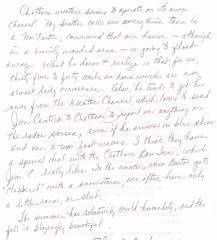 Chatham weather seems to operate on its own
channel. My brother calls me every time there is
a Nor'Easter, convinced that our house — although
in a heavily wooded area — is going to float
away. What he doesn't realize is that for us,
thirty-five to forty mile an hour winds are an
almost daily occurrence. Also, he tends to get his
news from the Weather Channel, which loves to send
Jim Cantore to Chatham to report on anything on
the radar screen, even if he arrives in blue skies
and one to two foot waves. I think they have
a special deal with the Chatham Bars Inn, which
Jim C. really likes. In the winter, when Boston gets
"clobbered" with a snowstorm, we often have only
a little rain, or sleet.
The summer has relatively mild humidity, and the
fall is blazingly beautiful.